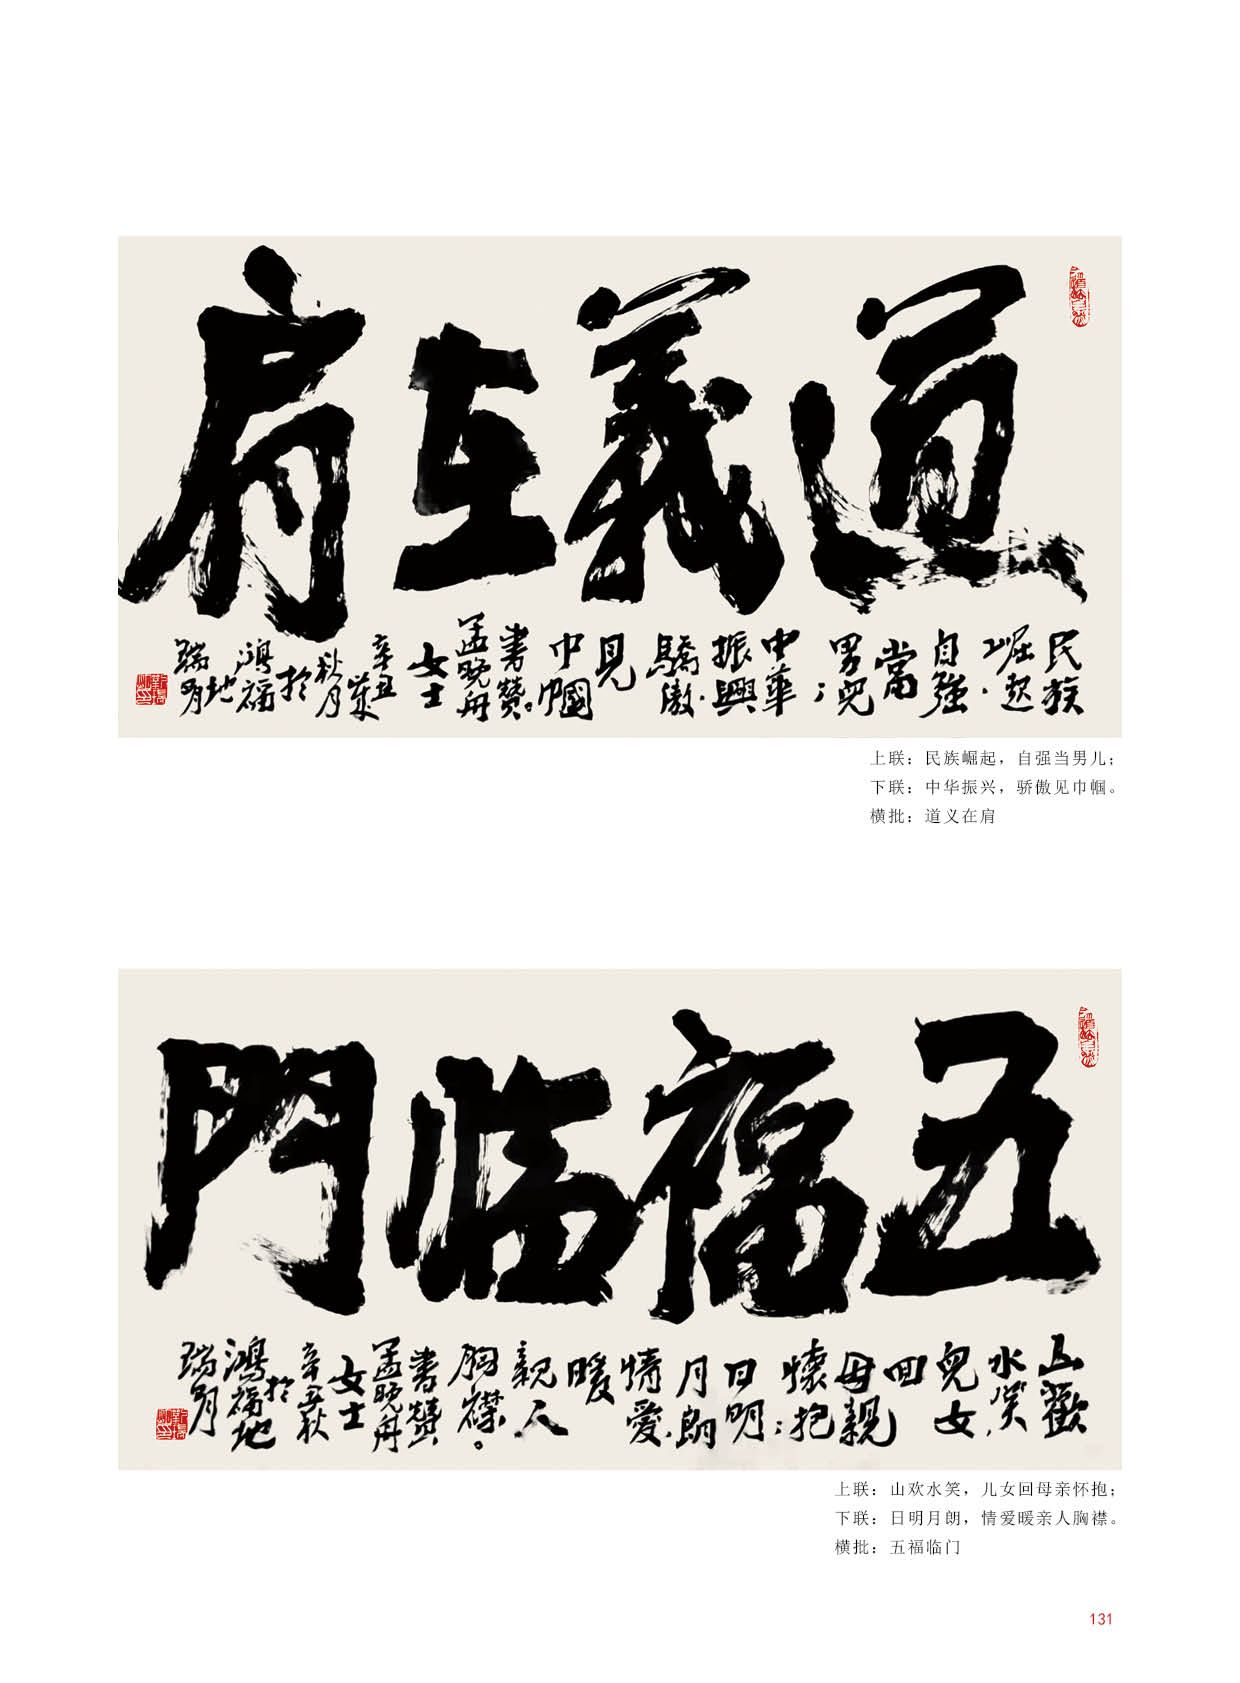 道義在肩
民族
崛起.
自強
當
男兒；
中華
振興.
驕傲
見
巾幗
書贊。
孟晚舟
女士
辛丑
秋月
於
鴻福
地
瑞明
上联：民族崛起，自强当男儿；
下联：中华振兴，骄傲见巾帼。
横批：道义在肩
五福临門
山歡
水笑，
兒女
回
母親
懷抱；
日明
月朗
情愛.
暖
親人
胸襟。
書贊
孟晚舟
女士
辛丑秋
於
鴻福地
瑞明
上联：山欢水笑，儿女回母亲怀抱；
下联：日明月朗，情爱暖亲人胸襟。
横批：五福临门
131